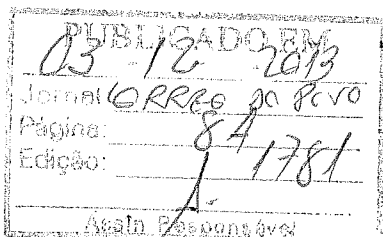 PUBLICADO EM
03 - 12 - 2013
Jornal CORREIO DO POVO
Página: 8A
Edição: 1781
Assin Responsável